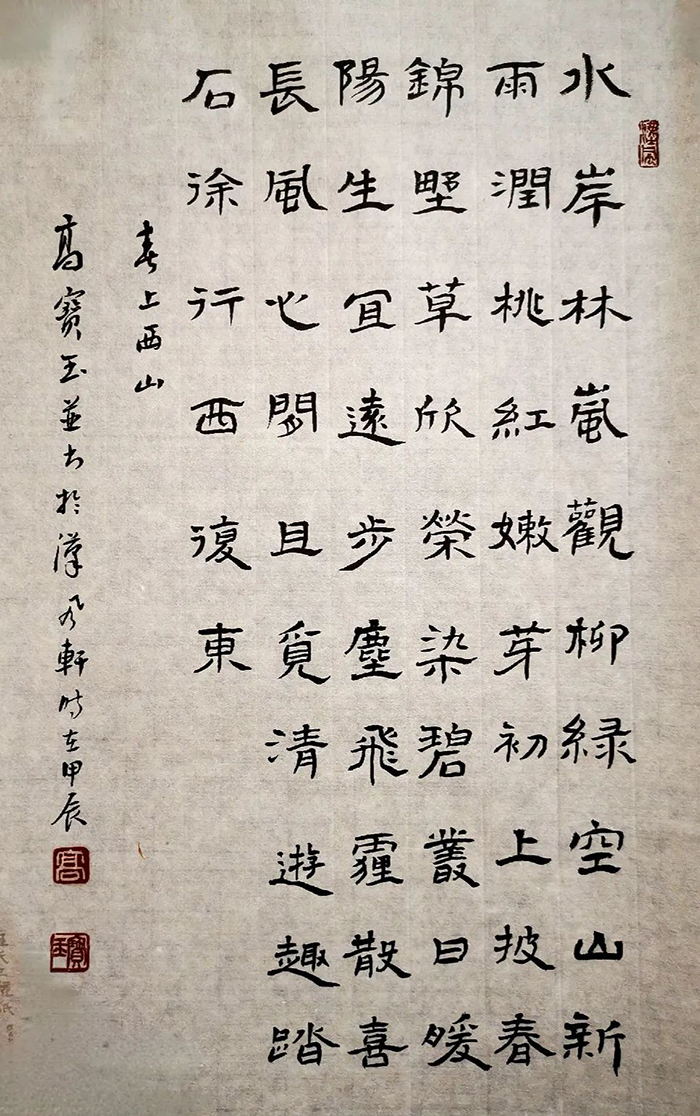 水岸林嵐觀柳緑空山新
雨潤桃紅嫩芽初上披春
錦野草欣榮染碧叢日暖
陽生宜遠步塵飛霾散喜
長風心閑且覓清遊趣踏
石徐行西復東
春上西山
高寶玉並书於漢風軒時在甲辰
高
寶玉